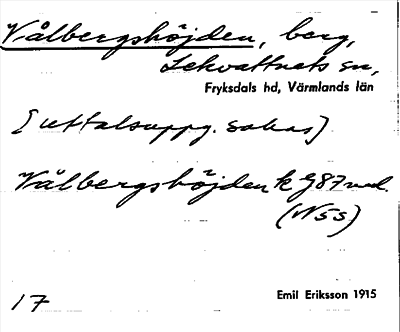 Vålbergshöjden, berg,
Lekvattnets sn,
Fryksdals hd, Värmlands län
[uttalsuppg. saknas]
Vålbergshöjden k G87 ned.
(N5S)
17
Emil Eriksson 1915